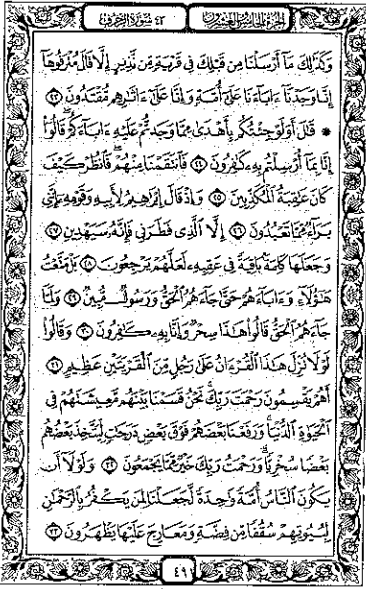 الجزء الخامس والعشرون ٤٣ سورة الزخرف
وَكَذَٰلِكَ مَآ أَرْسَلْنَا مِن قَبْلِكَ فِى قَرْيَةٍ مِّن نَّذِيرٍ إِلَّا قَالَ مُتْرَفُوهَآ
إِنَّا وَجَدْنَآ ءَابَآءَنَا عَلَىٰٓ أُمَّةٍ وَإِنَّا عَلَىٰٓ ءَاثَٰرِهِم مُّقْتَدُونَ ٢٣
۞ قَٰلَ أَوَلَوْ جِئْتُكُم بِأَهْدَىٰ مِمَّا وَجَدتُّمْ عَلَيْهِ ءَابَآءَكُمْ قَالُوٓا۟
إِنَّا بِمَآ أُرْسِلْتُم بِهِۦ كَٰفِرُونَ ٢٤ فَٱنتَقَمْنَا مِنْهُمْ فَٱنظُرْ كَيْفَ
كَانَ عَٰقِبَةُ ٱلْمُكَذِّبِينَ ٢٥ وَإِذْ قَالَ إِبْرَٰهِيمُ لِأَبِيهِ وَقَوْمِهِۦٓ إِنَّنِى
بَرَآءٌ مِّمَّا تَعْبُدُونَ ٢٦ إِلَّا ٱلَّذِى فَطَرَنِى فَإِنَّهُۥ سَيَهْدِينِ ٢٧
وَجَعَلَهَا كَلِمَةًۢ بَاقِيَةً فِى عَقِبِهِۦ لَعَلَّهُمْ يَرْجِعُونَ ٢٨ بَلْ مَتَّعْتُ
هَٰٓؤُلَآءِ وَءَابَآءَهُمْ حَتَّىٰ جَآءَهُمُ ٱلْحَقُّ وَرَسُولٌ مُّبِينٌ ٢٩ وَلَمَّا
جَآءَهُمُ ٱلْحَقُّ قَالُوا۟ هَٰذَا سِحْرٌ وَإِنَّا بِهِۦ كَٰفِرُونَ ٣٠ وَقَالُوا۟
لَوْلَا نُزِّلَ هَٰذَا ٱلْقُرْءَانُ عَلَىٰ رَجُلٍ مِّنَ ٱلْقَرْيَتَيْنِ عَظِيمٍ ٣١
أَهُمْ يَقْسِمُونَ رَحْمَتَ رَبِّكَ نَحْنُ قَسَمْنَا بَيْنَهُم مَّعِيشَتَهُمْ فِى
ٱلْحَيَوٰةِ ٱلدُّنْيَا وَرَفَعْنَا بَعْضَهُمْ فَوْقَ بَعْضٍ دَرَجَٰتٍ لِّيَتَّخِذَ بَعْضُهُم
بَعْضًا سُخْرِيًّا وَرَحْمَتُ رَبِّكَ خَيْرٌ مِّمَّا يَجْمَعُونَ ٣٢ وَلَوْلَآ أَن
يَكُونَ ٱلنَّاسُ أُمَّةً وَٰحِدَةً لَّجَعَلْنَا لِمَن يَكْفُرُ بِٱلرَّحْمَٰنِ
لِبُيُوتِهِمْ سُقُفًا مِّن فِضَّةٍ وَمَعَارِجَ عَلَيْهَا يَظْهَرُونَ ٣٣
٤٩١